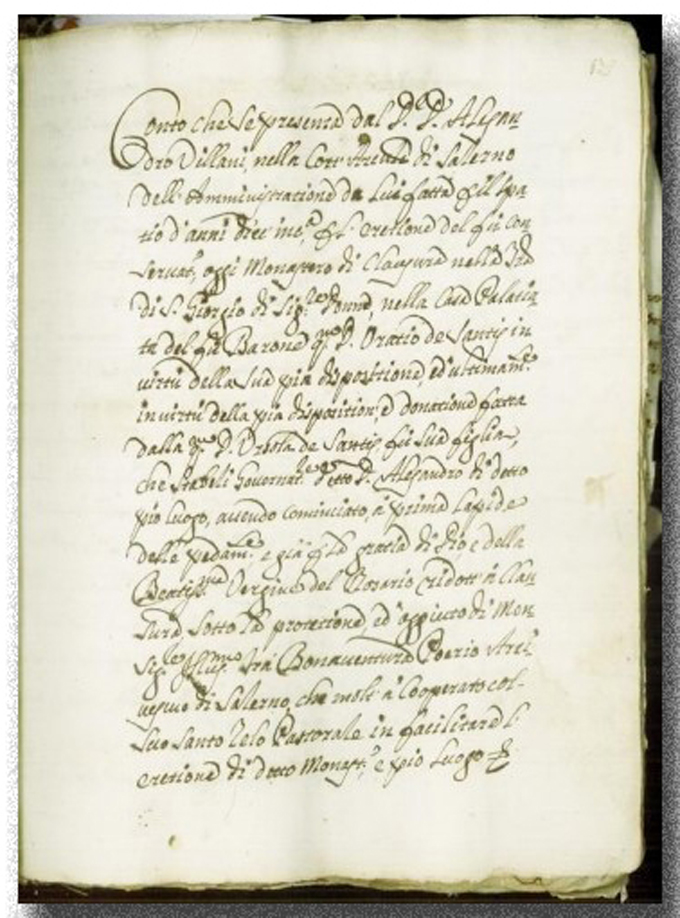 Conto che se presenta dal D.r D. Alesan
dro Dillani, nella Corte Arcivile di Salerno
dell'Amministratione da lui fatta p il spa
tio d'anni dieci inc.a p l'eretione del fù con
servat.o, oggi Monastero di Clausura nella T'ra
di S. Giorgio di Sig.le Donne, nella Casa Palatia
ta del fù Barone q.m D. Oratio de Santis in
virtù della sua pia dispositione, ed ultimam.te
in virtù della pia disposition', e donatione fatta
dalla q.m D. Ursola de Santis fù sua figlia,
che stabelì Governat.re detto D. Alesandro di detto
pio luogo, avendo cominciato, a prima lapide
delle pedam.ta e già p la gratia di Dio e della
Beatiss.ma Vergine del Rosario ridott' a Clau
sura sotto la protetione, ed' aggiuto di Mon
sig.re Ill.mo frà Bonaventura Poerio Arci
vescovo di Salerno, che molt' à Cooperato col
suo santo Zelo Pastorale in facilitare l'
eretione di detto Monast.o e pio luogo